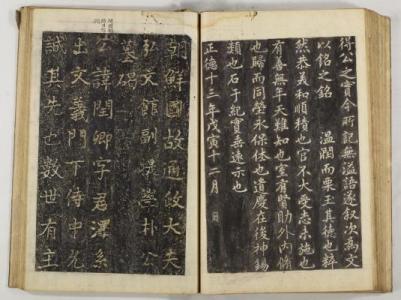 得公之實今所記無溢語遂叙次為文
以之銘 温潤而栗玉其德也粹
然恭美和順積也官不大受志未施也
有善無年天難知也室有賢助外內脩
也歸而同塋永保休也遺慶在後神錫
類也石于紀實善遠示也
正德十三年戊寅十二月 日
朝鮮國故通政大夫
弘文館副提學朴公
墓碣
公諱閏卿字君澤系
出文義門下侍中允
誠其先也數世有主